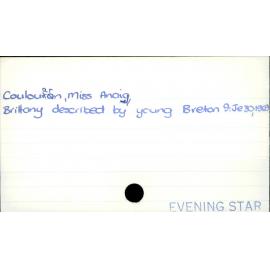 Miss Anaig
Brittany described by young Breton 9:Je30,1969
EVENING STAR